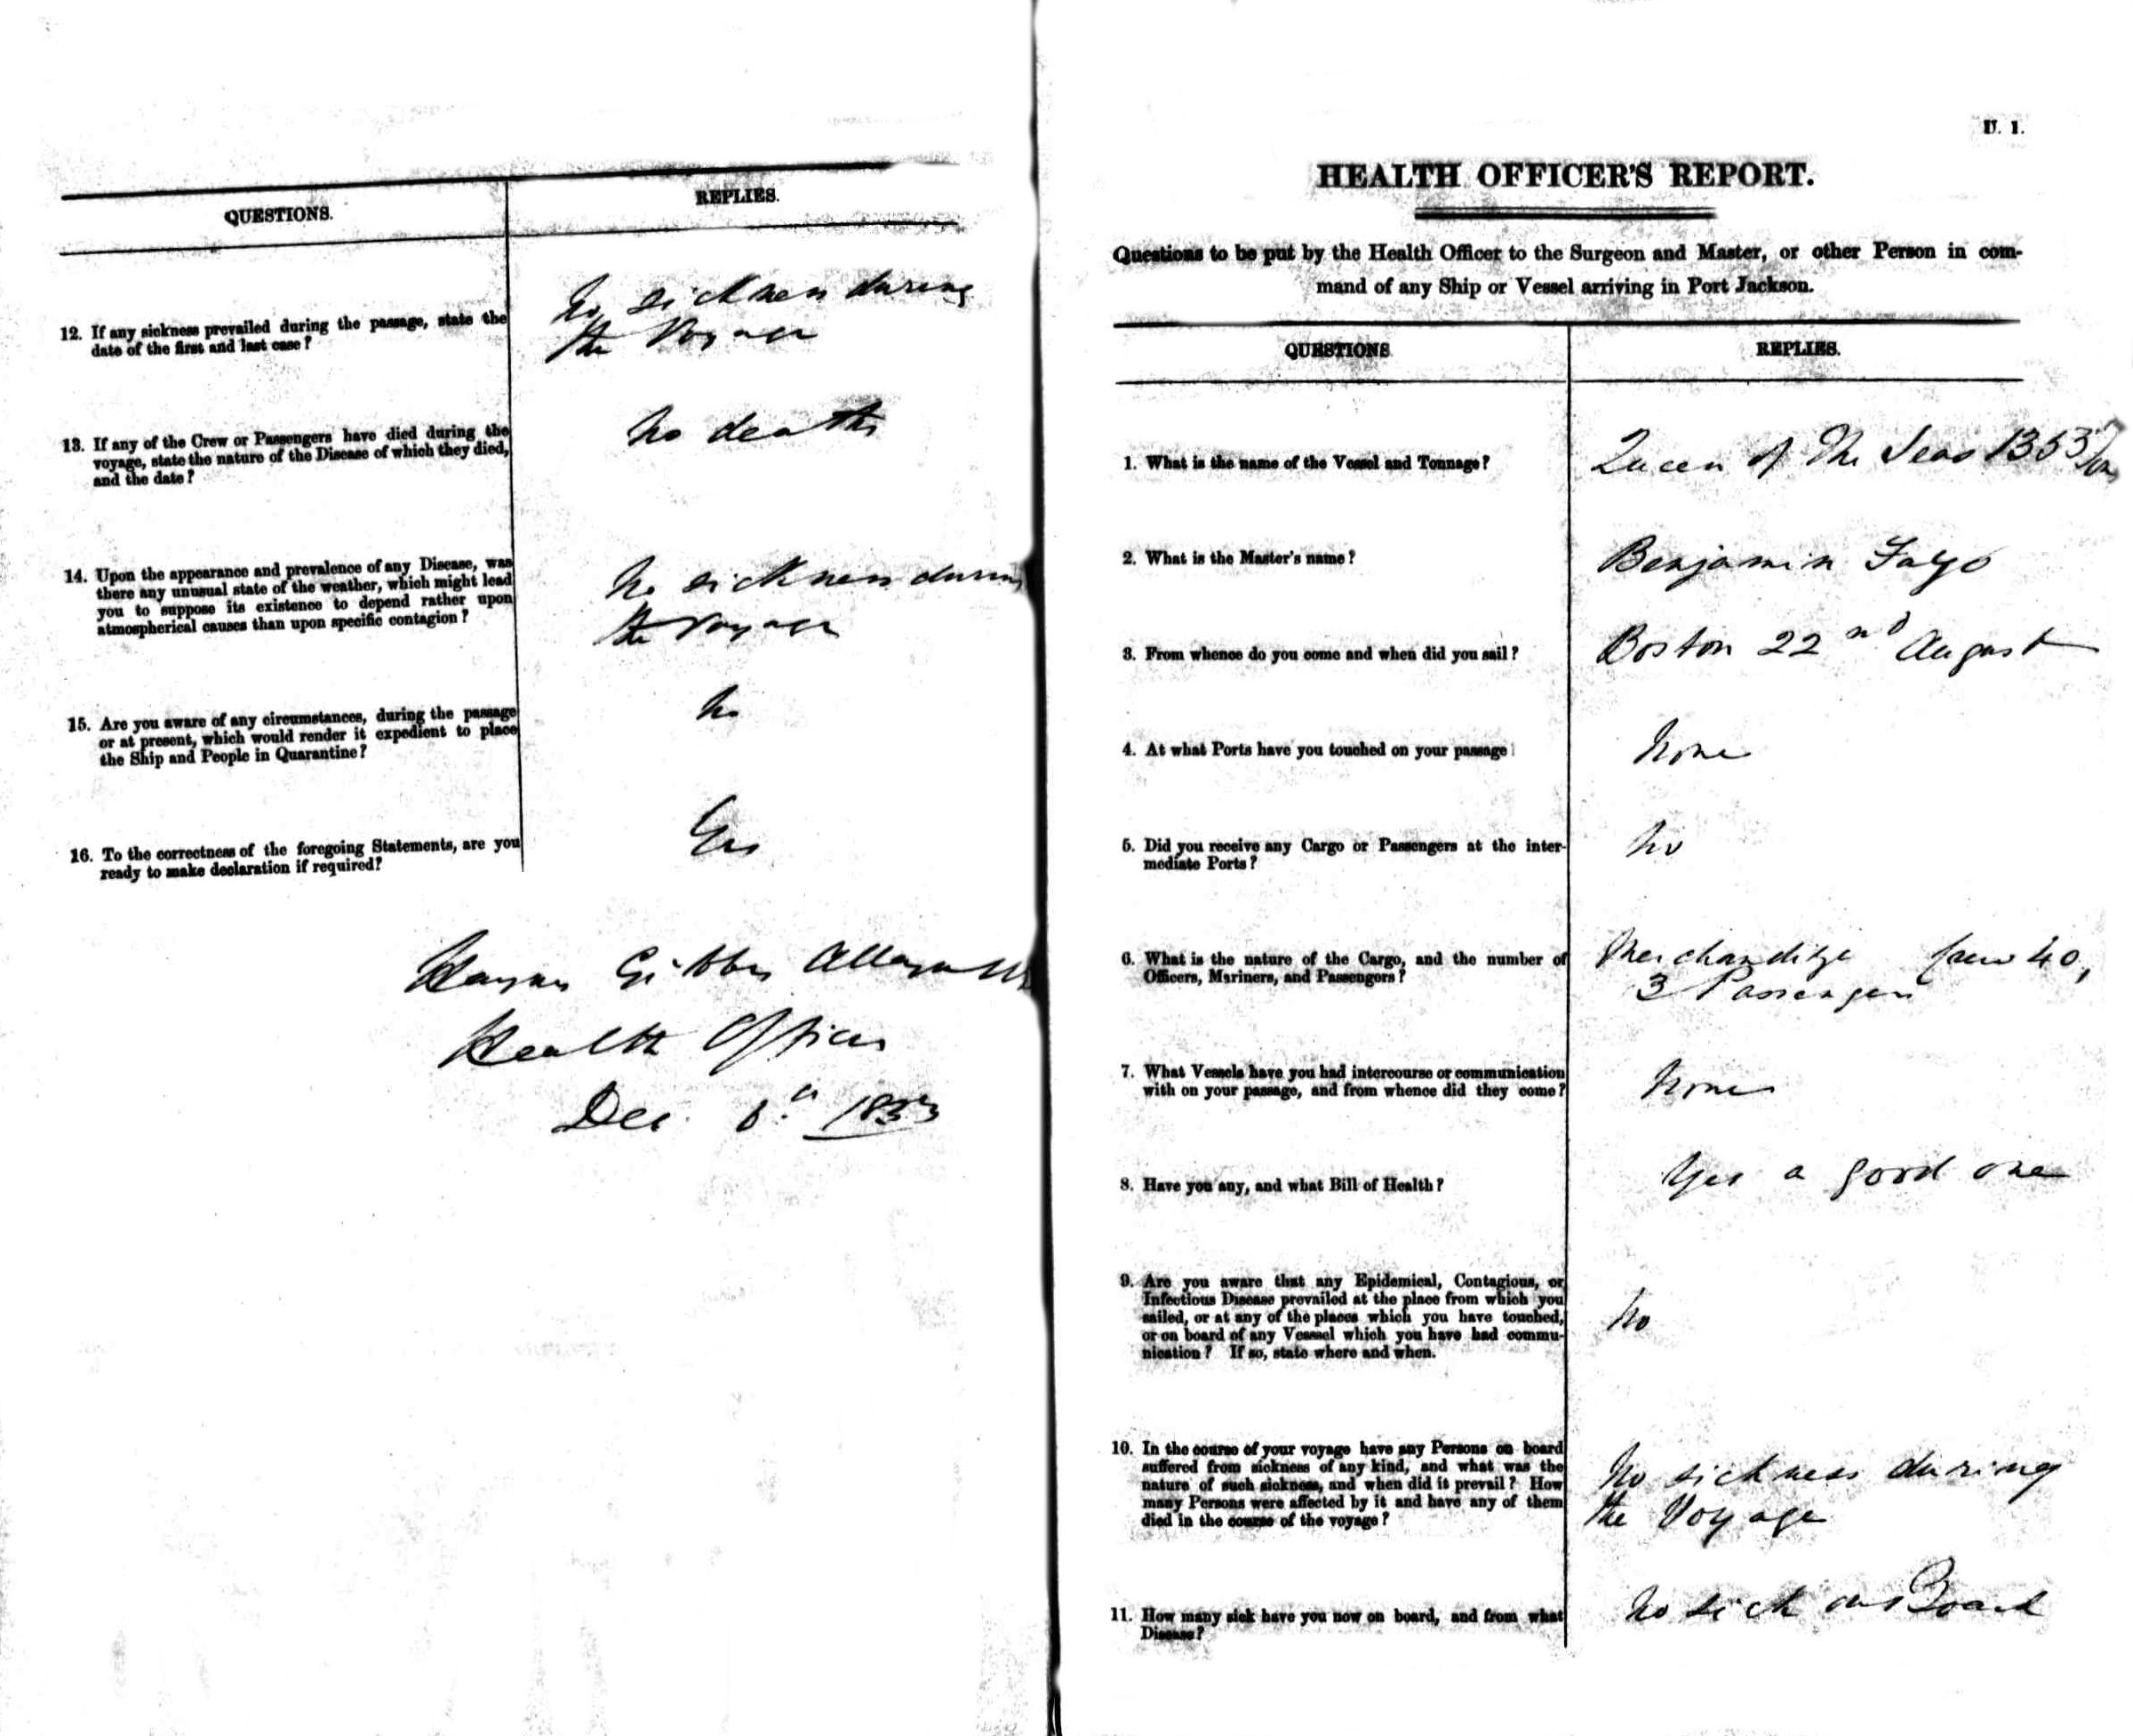 QUESTIONS.
REPLIES.
12. If any sickness prevailed during the passage, state the
date of the first and last case?
No sickness during
the Voyage
13. If any of the Crew or Passengers have died during the
voyage, state the nature of the Disease of which they died,
and the date?
No deaths
14. Upon the appearance and prevalence of any Disease, was
there any unusual state of the weather, which might lead
you to suppose its existence to depend rather upon
atmospherical causes than upon specific contagion?
No sickness during
the Voyage
15. Are you aware of any circumstances, during the passage
or at present, which would render it expedient to place
the Ship and People in Quarantine?
No
16. To the correctness of the foregoing Statements, are you
ready to make declaration if required?
Yes
Gibbes
Health Officer
Dec. 1853
U. 1.
HEALTH OFFICER'S REPORT.
Questions to be put by the Health Officer to the Surgeon and Master, or other Person in com-
mand of any Ship or Vessel arriving in Port Jackson.
QUESTIONS
REPLIES.
1. What is the name of the Vessel and Tonnage?
Queen of The Seas 1353
2. What is the Master's name?
Benjamin
3. From whence do you come and when did you sail?
Boston 22nd August
4. At what Ports have you touched on your passage
None
5. Did you receive any Cargo or Passengers at the inter-
mediate Ports?
No
6. What is the nature of the Cargo, and the number of
Officers, Mariners, and Passengers?
Merchandize Crew 40,
3 Passengers
7. What Vessels have you had intercourse or communication
with on your passage, and from whence did they come?
None
8. Have you any, and what Bill of Health?
Yes a good one
9. Are you aware that any Epidemical, Contagious, or
Infectious Disease prevailed at the place from which you
sailed, or at any of the places which you have touched,
or on board of any Vessel which you have had commu-
nication? If so, state where and when.
No
10. In the course of your voyage have any Persons on board
suffered from sickness of any kind, and what was the
nature of such sickness, and when did it prevail? How
many Persons were affected by it and have any of them
died in the course of the voyage?
No sickness during
the Voyage
11. How many sick have you now on board, and from what
Disease?
No sick on Board